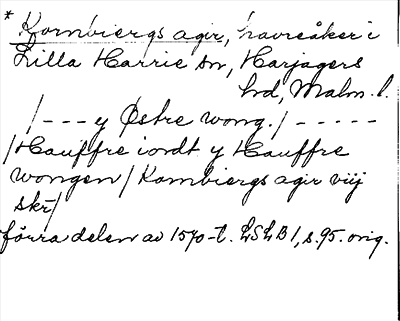 * Kornbiergs agir, havreåker i
Lilla Harrie sn, Harjagers
hd, Malm. l.
/ - - - y Østre wong. / - - - - -
/ Hauffre iordt y Hauffre
wongen / Kornbiergs agir viij
skr /
förra delen av 1570-t. LSLB 1, s. 95. orig.